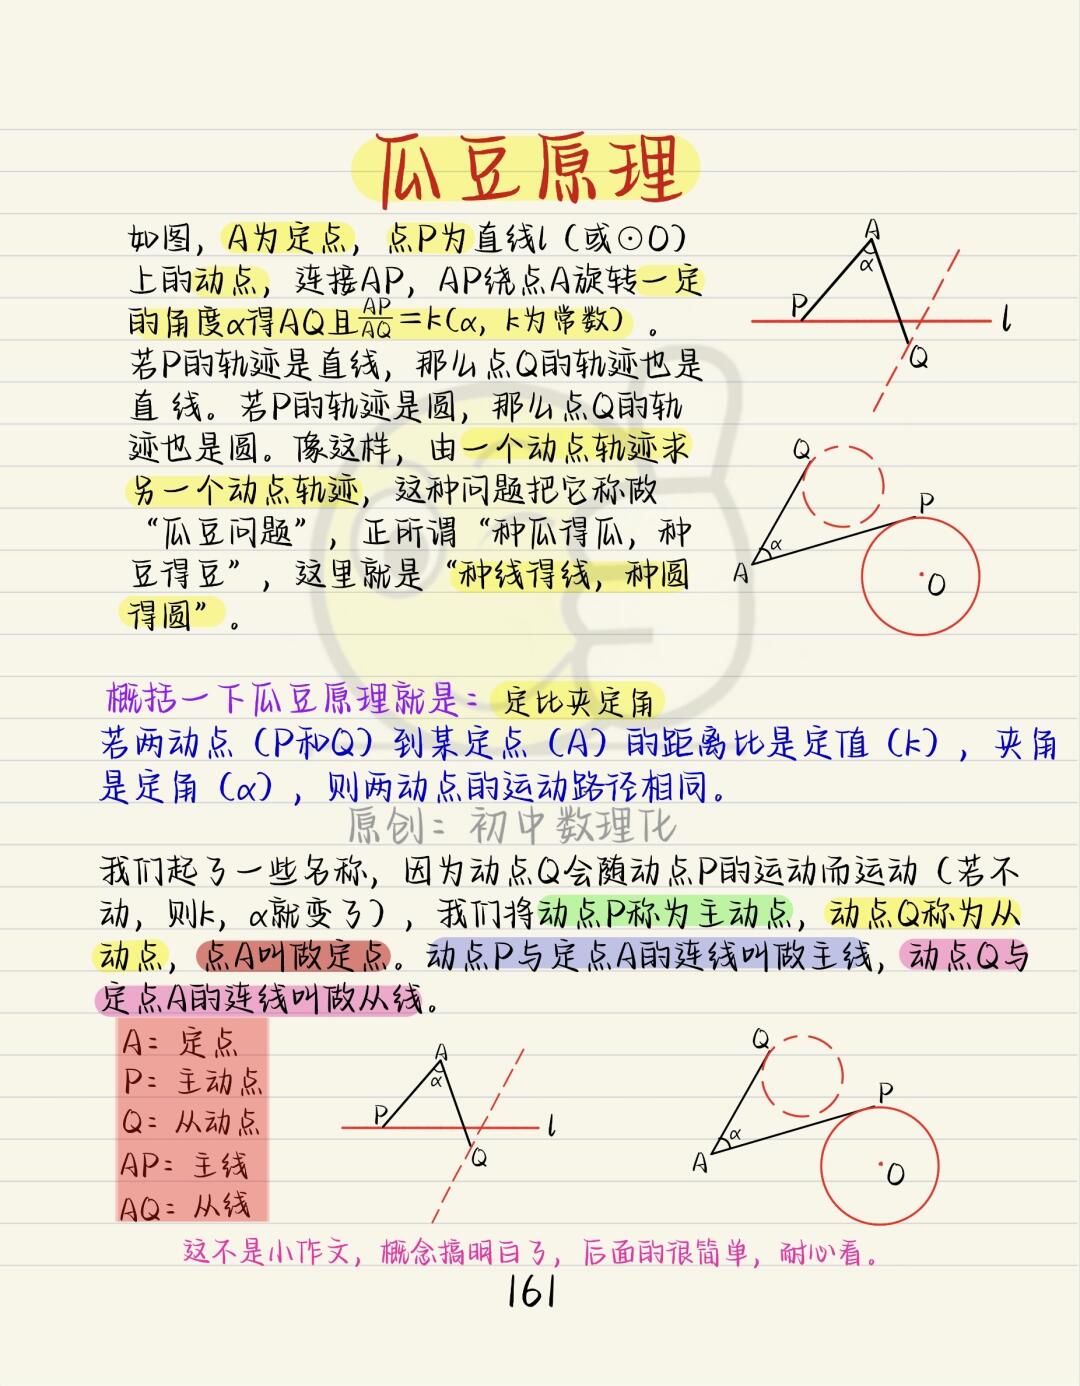 瓜豆原理
如图，A为定点，点P为直线l（或⊙O）
上的动点，连接AP，AP绕点A旋转一定
的角度α得AQ且AP/AQ=k(α，k为常数）。
若P的轨迹是直线，那么点Q的轨迹也是
直线。若P的轨迹是圆，那么点Q的轨
迹也是圆。像这样，由一个动点轨迹求
另一个动点轨迹，这种问题把它称做
“瓜豆问题”，正所谓“种瓜得瓜，种
豆得豆”，这里就是“种线得线，种圆
得圆”。
A
α
P
l
Q
Q
P
α
A
O
概括一下瓜豆原理就是：定比夹定角
若两动点（P和Q）到某定点（A）的距离比是定值（k），夹角
是定角（α），则两动点的运动路径相同。
原创：初中数理化
我们起了一些名称，因为动点Q会随动点P的运动而运动（若不
动，则k，α就变了），我们将动点P称为主动点，动点Q称为从
动点，点A叫做定点。动点P与定点A的连线叫做主线，动点Q与
定点A的连线叫做从线。
A：定点
P：主动点
Q：从动点
AP：主线
AQ：从线
A
α
P
l
Q
Q
P
α
A
O
这不是小作文，概念搞明白了，后面的很简单，耐心看。
161